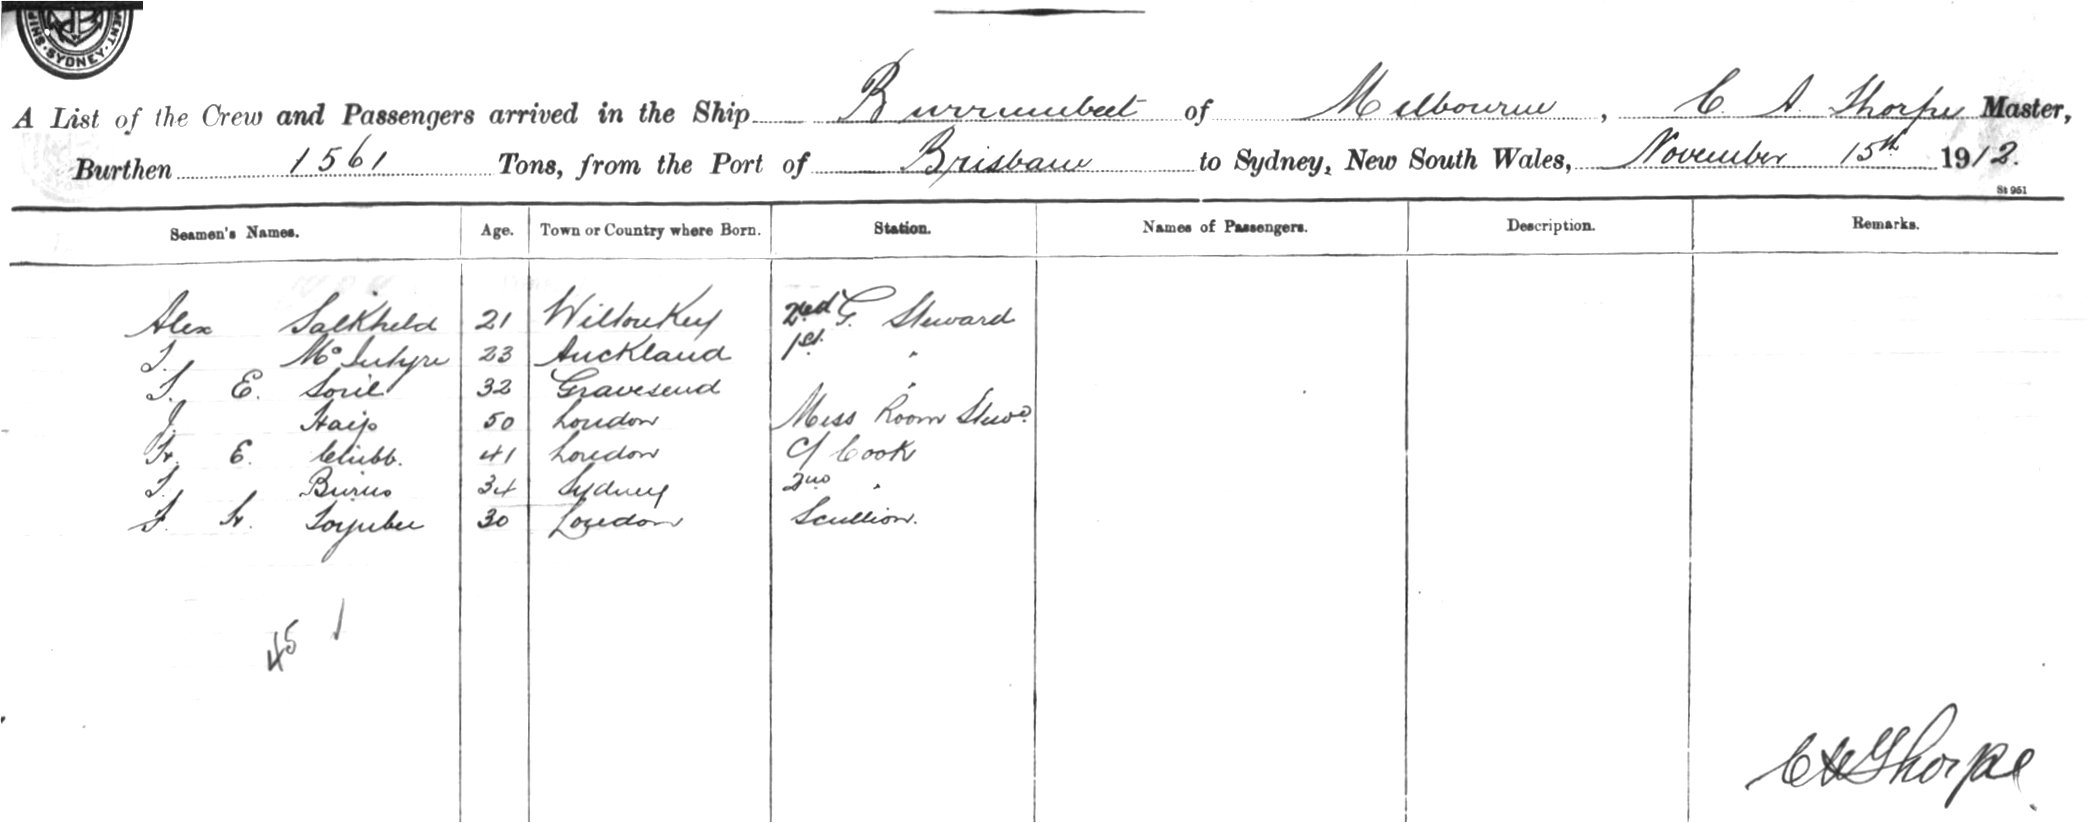 SHIP · SYDNEY · MENT
A List of the Crew and Passengers arrived in the Ship Burrumbeet of Melbourne, C. A. Thorpe Master,
Burthen 1561 Tons, from the Port of Brisbane to Sydney, New South Wales, November 15th 1912.
St 951
Seamen's Names. Age. Town or Country where Born. Station. Names of Passengers. Description. Remarks.
Alex Salkheld 21 2nd G. Steward
McIntyre 23 Auckland 1st "
E. 32 Gravesend "
J. 50 London Mess Room Stewd
E. Chibb. 41 London C/ Cook
Burns 34 Sydney 2nd "
30 London Scullion.
45
C A Thorpe